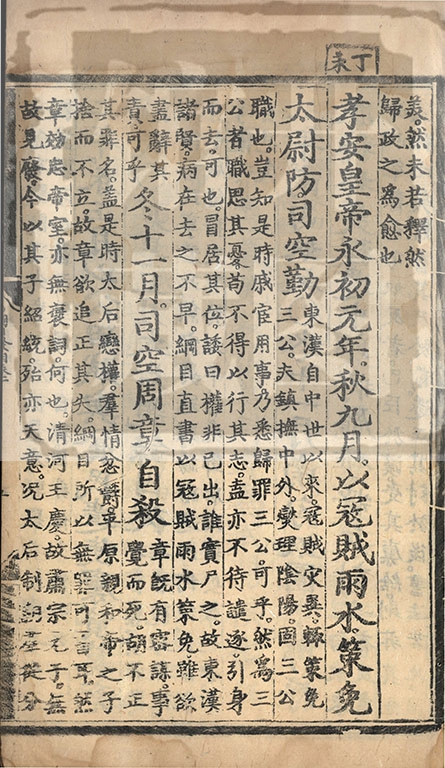 丁未
美。然未若釋然
歸政之爲愈也
孝安皇帝永初元年。秋九月。以寇賊雨水。策免
太尉防司空勤東漢自中世以來。寇賊災異。輒策免
三公。夫鎮撫中外。燮理陰陽。固三公
職也。豈知是時戚宦用事。乃悉歸罪三公。可乎。然爲三
公者。職思其憂。苟不得以行其志。盍亦不待譴逐。引身
而去。可也。冒居其位。諉曰權非己出。誰實尸之。故東漢
諸賢。病在去之不早。綱目直書以寇賊雨水策免。雖欲
盡辭其
責。可乎冬十一月。司空周章自殺章旣有密謀。事
覺而死。胡不正
其罪名。盖是時太后戀權。羣情忿鬱。平原親和帝之子
捨而不立。故章欲追正其失。綱目所以無異可。然
章効忠帝室。亦無褒詞。何也。清河王慶。故肅宗元子。無
故見廢。今以其子紹統。殆亦天意。况太后制朝。從分